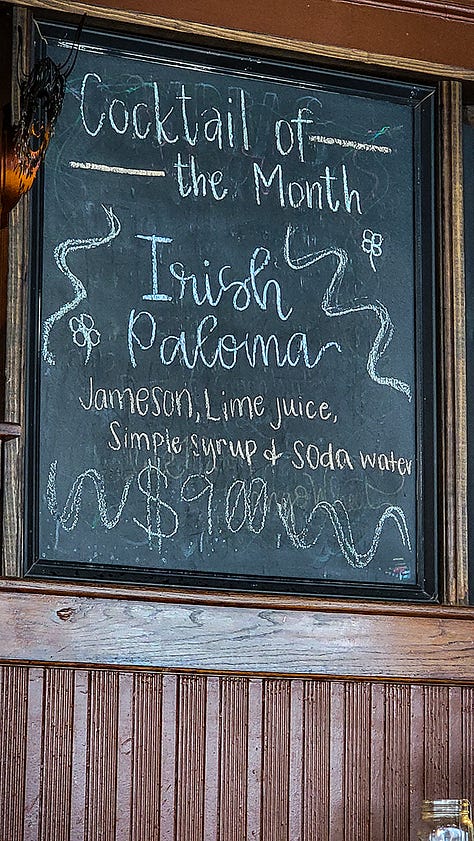 Cocktail of
the Month
Irish
Paloma
Jameson, Lime juice,
Simple syrup & Soda water
$9.00